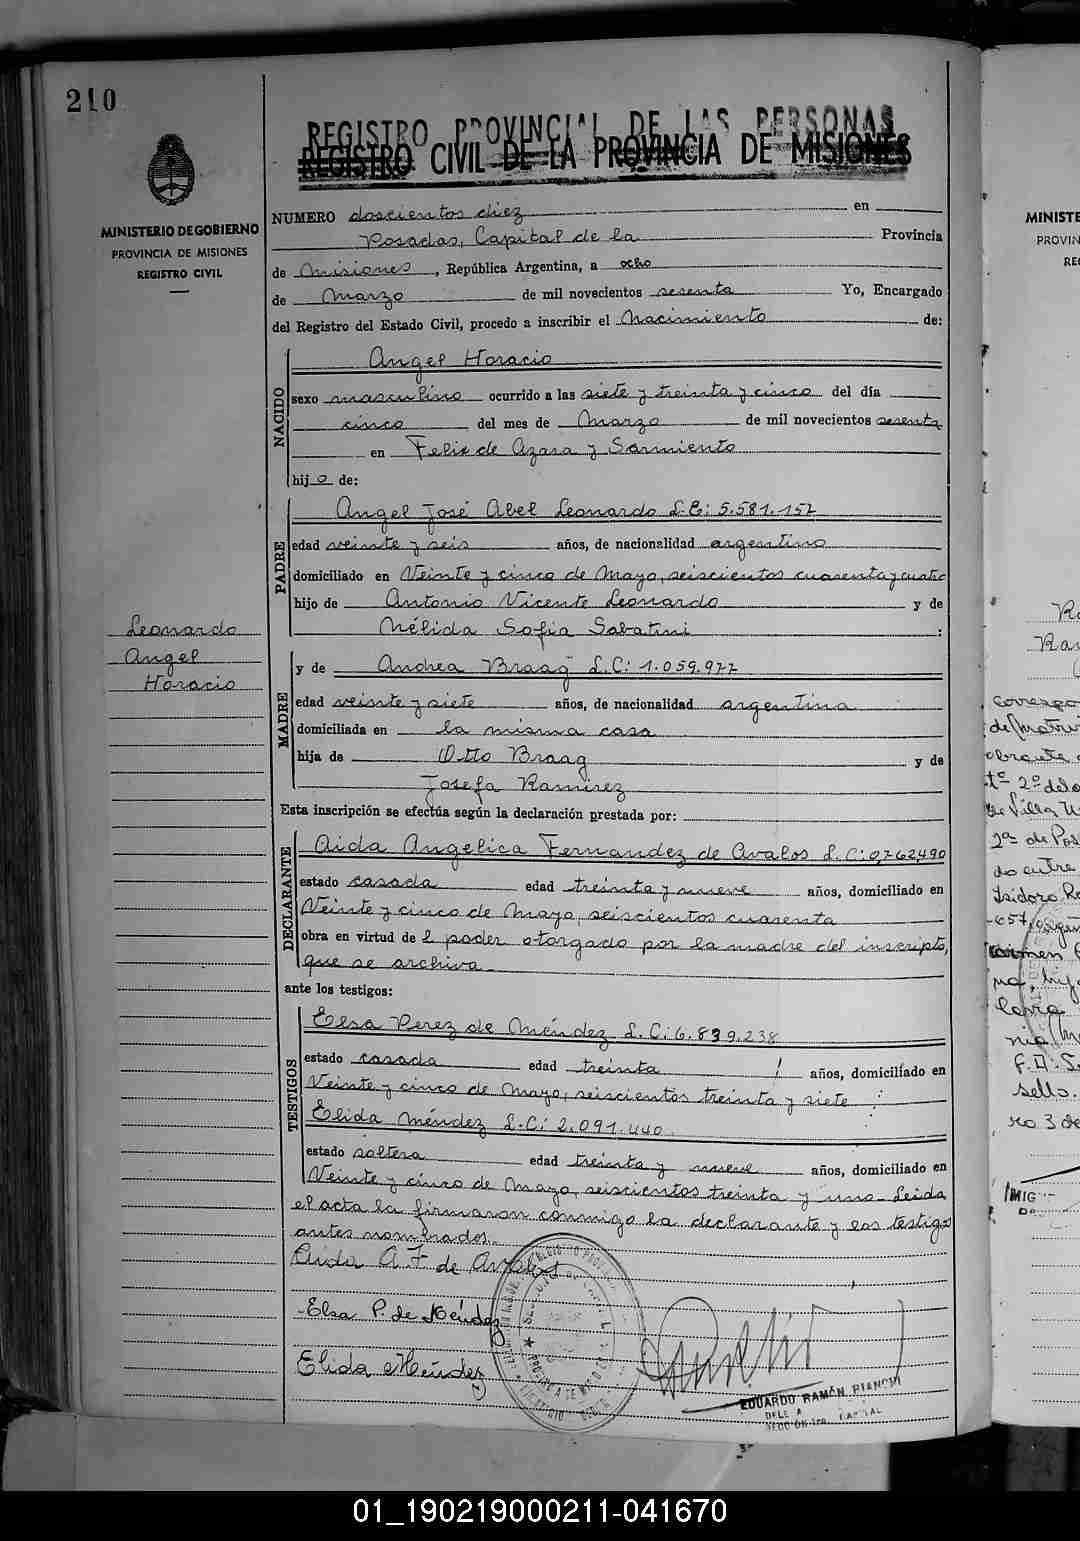 210
REGISTRO PROVINCIAL DE LAS PERSONAS
REGISTRO CIVIL DE LA PROVINCIA DE MISIONES
MINISTERIO DE GOBIERNO
PROVINCIA DE MISIONES
REGISTRO CIVIL
NUMERO doscientos diez en
Posadas, Capital de la Provincia
de Misiones, República Argentina, a ocho
de Marzo de mil novecientos sesenta Yo, Encargado
del Registro del Estado Civil, procedo a inscribir el Nacimiento de:
NACIDO
Angel Horacio
sexo masculino ocurrido a las siete y treinta y cinco del día
cinco del mes de Marzo de mil novecientos sesenta
en Felix de Azara y Sarmiento
hijo de:
PADRE
Angel José Abel Leonardo L.E: 5.581.157
edad veinte y seis años, de nacionalidad argentino
domiciliado en Veinte y cinco de Mayo, seiscientos cuarenta y cuatro
hijo de Antonio Vicente Leonardo y de
Nélida Sofia Sabatini :
Leonardo
Angel
Horacio
MADRE
y de Andrea Braag L.C: 1.059.977
edad veinte y siete años, de nacionalidad argentina
domiciliada en la misma casa
hija de Otto Braag y de
Josefa Ramirez
Esta inscripción se efectúa según la declaración prestada por:
DECLARANTE
Aida Angelica Fernandez de Avalos L.C: 0,762,490
estado casada edad treinta y nueve años, domiciliado en
Veinte y cinco de Mayo, seiscientos cuarenta
obra en virtud de l poder otorgado por la madre del inscripto,
que se archiva
ante los testigos:
TESTIGOS
Elsa Perez de Méndez L.C: 6.839.238
estado casada edad treinta años, domiciliado en
Veinte y cinco de Mayo, seiscientos treinta y siete
Elida Méndez L.C: 2.091.440.
estado soltera edad treinta y nueve años, domiciliado en
Veinte y cinco de Mayo, seiscientos treinta y uno- Leida
el acta la firmaron conmigo la declarante y los testigos
antes nombrados.
Aida A F de Avalos
Elsa P. de Méndez
Elida Méndez
EDUARDO RAMÓN BIANCHI
MINISTE
PROVIN
RE
correspo
de Matri
2º del
de Villa
2ª de Pos
do entre
Isidoro
sello.
01_190219000211-041670